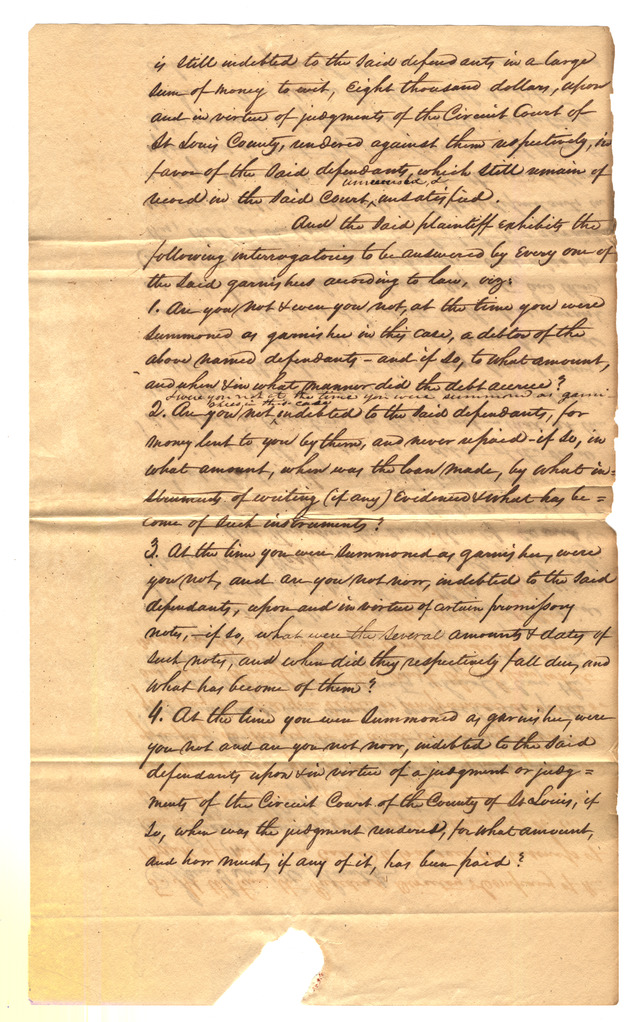 is still indebted to the said defendants in a large
sum of money to wit, Eight thousand dollars, upon
and in virtue of judgments of the Circuit Court of
St Louis County, rendered against them respectively, in
favor of the said defendants, which still remain of
unreversed, &
record in the said Court, unsatisfied.
And the said plaintiff exhibits the
following interrogatories to be answered by every one of
the said garnishees according to law, viz:
1. Are you not & were you not, at the time you were
summoned as garnishee in this case, a debtor of the
above named defendants – and if so, to what amount,
and when & in what manner did the debt accrue?
& were you not at the time you were summoned as garni-
shees in this case
2. Are you not indebted to the said defendants, for
money lent to you by them, and never repaid – if so, in
what amount, when was the loan made, by what in=
struments of writing (if any) Evidenced & what has be=
come of such instruments?
3. At the time you were summoned as garnishee, were
you not, and are you not now, indebted to the said
defendants, upon and in virtue of certain promissory
notes, – if so, what were the several amounts & dates of
such notes, and when did they respectively fall due, and
what has become of them?
4. At the time you were summoned as garnishee, were
you not and are you not now, indebted to the said
defendants upon & in virtue of a judgment or judg=
ments of the Circuit Court of the County of St Louis, if
so, when was the judgment rendered, for what amount,
and how much, if any of it, has been paid?